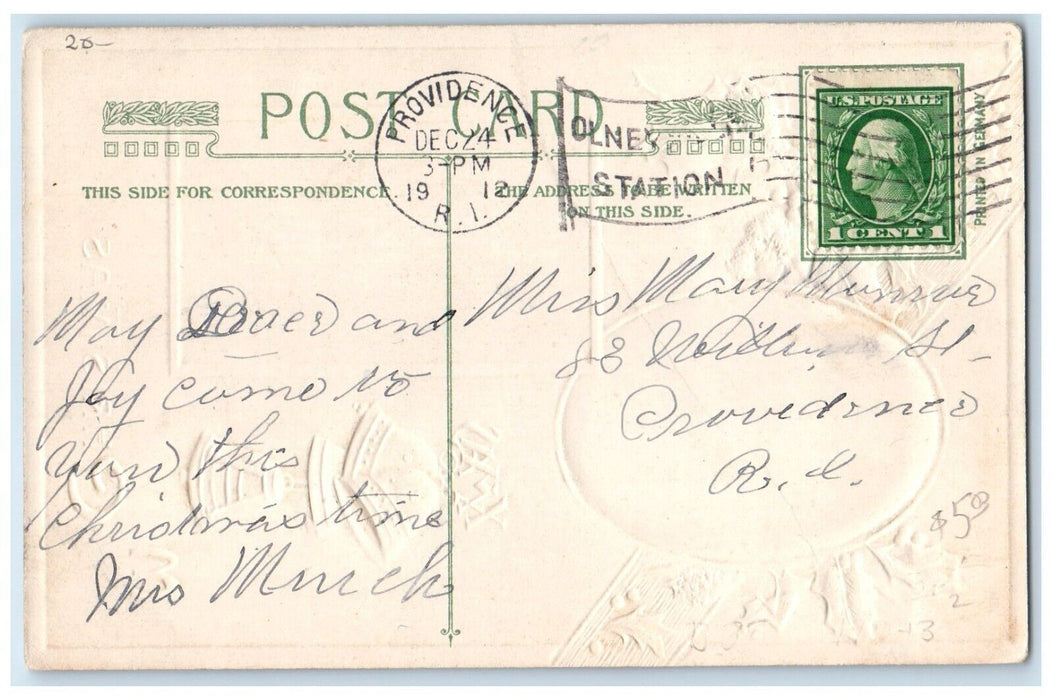 20-
POST CARD
THIS SIDE FOR CORRESPONDENCE.
THE ADDRESS TO BE WRITTEN
ON THIS SIDE.
PROVIDENCE
DEC 24
3-PM
1912
R.I.
OLNEY
STATION
U.S. POSTAGE
1 CENT 1
PRINTED IN GERMANY
May Peace and
Joy come to
you this
Christmas time
Mrs Murch
Miss Mary Munroe
88 St-
Providence
R. I.
$5.00